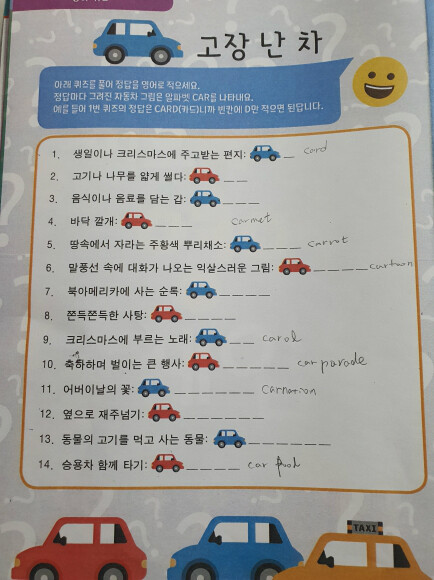 고장 난 차
아래 퀴즈를 풀어 정답을 영어로 적으세요.
정답마다 그려진 자동차 그림은 알파벳 CAR를 나타내요.
예를 들어 1번 퀴즈의 정답은 CARD(카드)니까 빈칸에 D만 적으면 된답니다.
1. 생일이나 크리스마스에 주고받는 편지: _ card
2. 고기나 나무를 얇게 썰다: _ _
3. 음식이나 음료를 담는 갑: _ _ _
4. 바닥 깔개: _ _ _ carmet
5. 땅속에서 자라는 주황색 뿌리채소: _ _ _ carrot
6. 말풍선 속에 대화가 나오는 익살스러운 그림: _ _ _ _ cartoon
7. 북아메리카에 사는 순록: _ _ _ _
8. 쫀득쫀득한 사탕: _ _ _ _
9. 크리스마스에 부르는 노래: _ _ carol
10. 축하하며 벌이는 큰 행사: _ _ _ _ _ car parade
11. 어버이날의 꽃: _ _ _ _ _ Carnation
12. 옆으로 재주넘기: _ _ _ _ _ _
13. 동물의 고기를 먹고 사는 동물: _ _ _ _ _ _ _
14. 승용차 함께 타기: _ _ _ _ car pool
TAXI